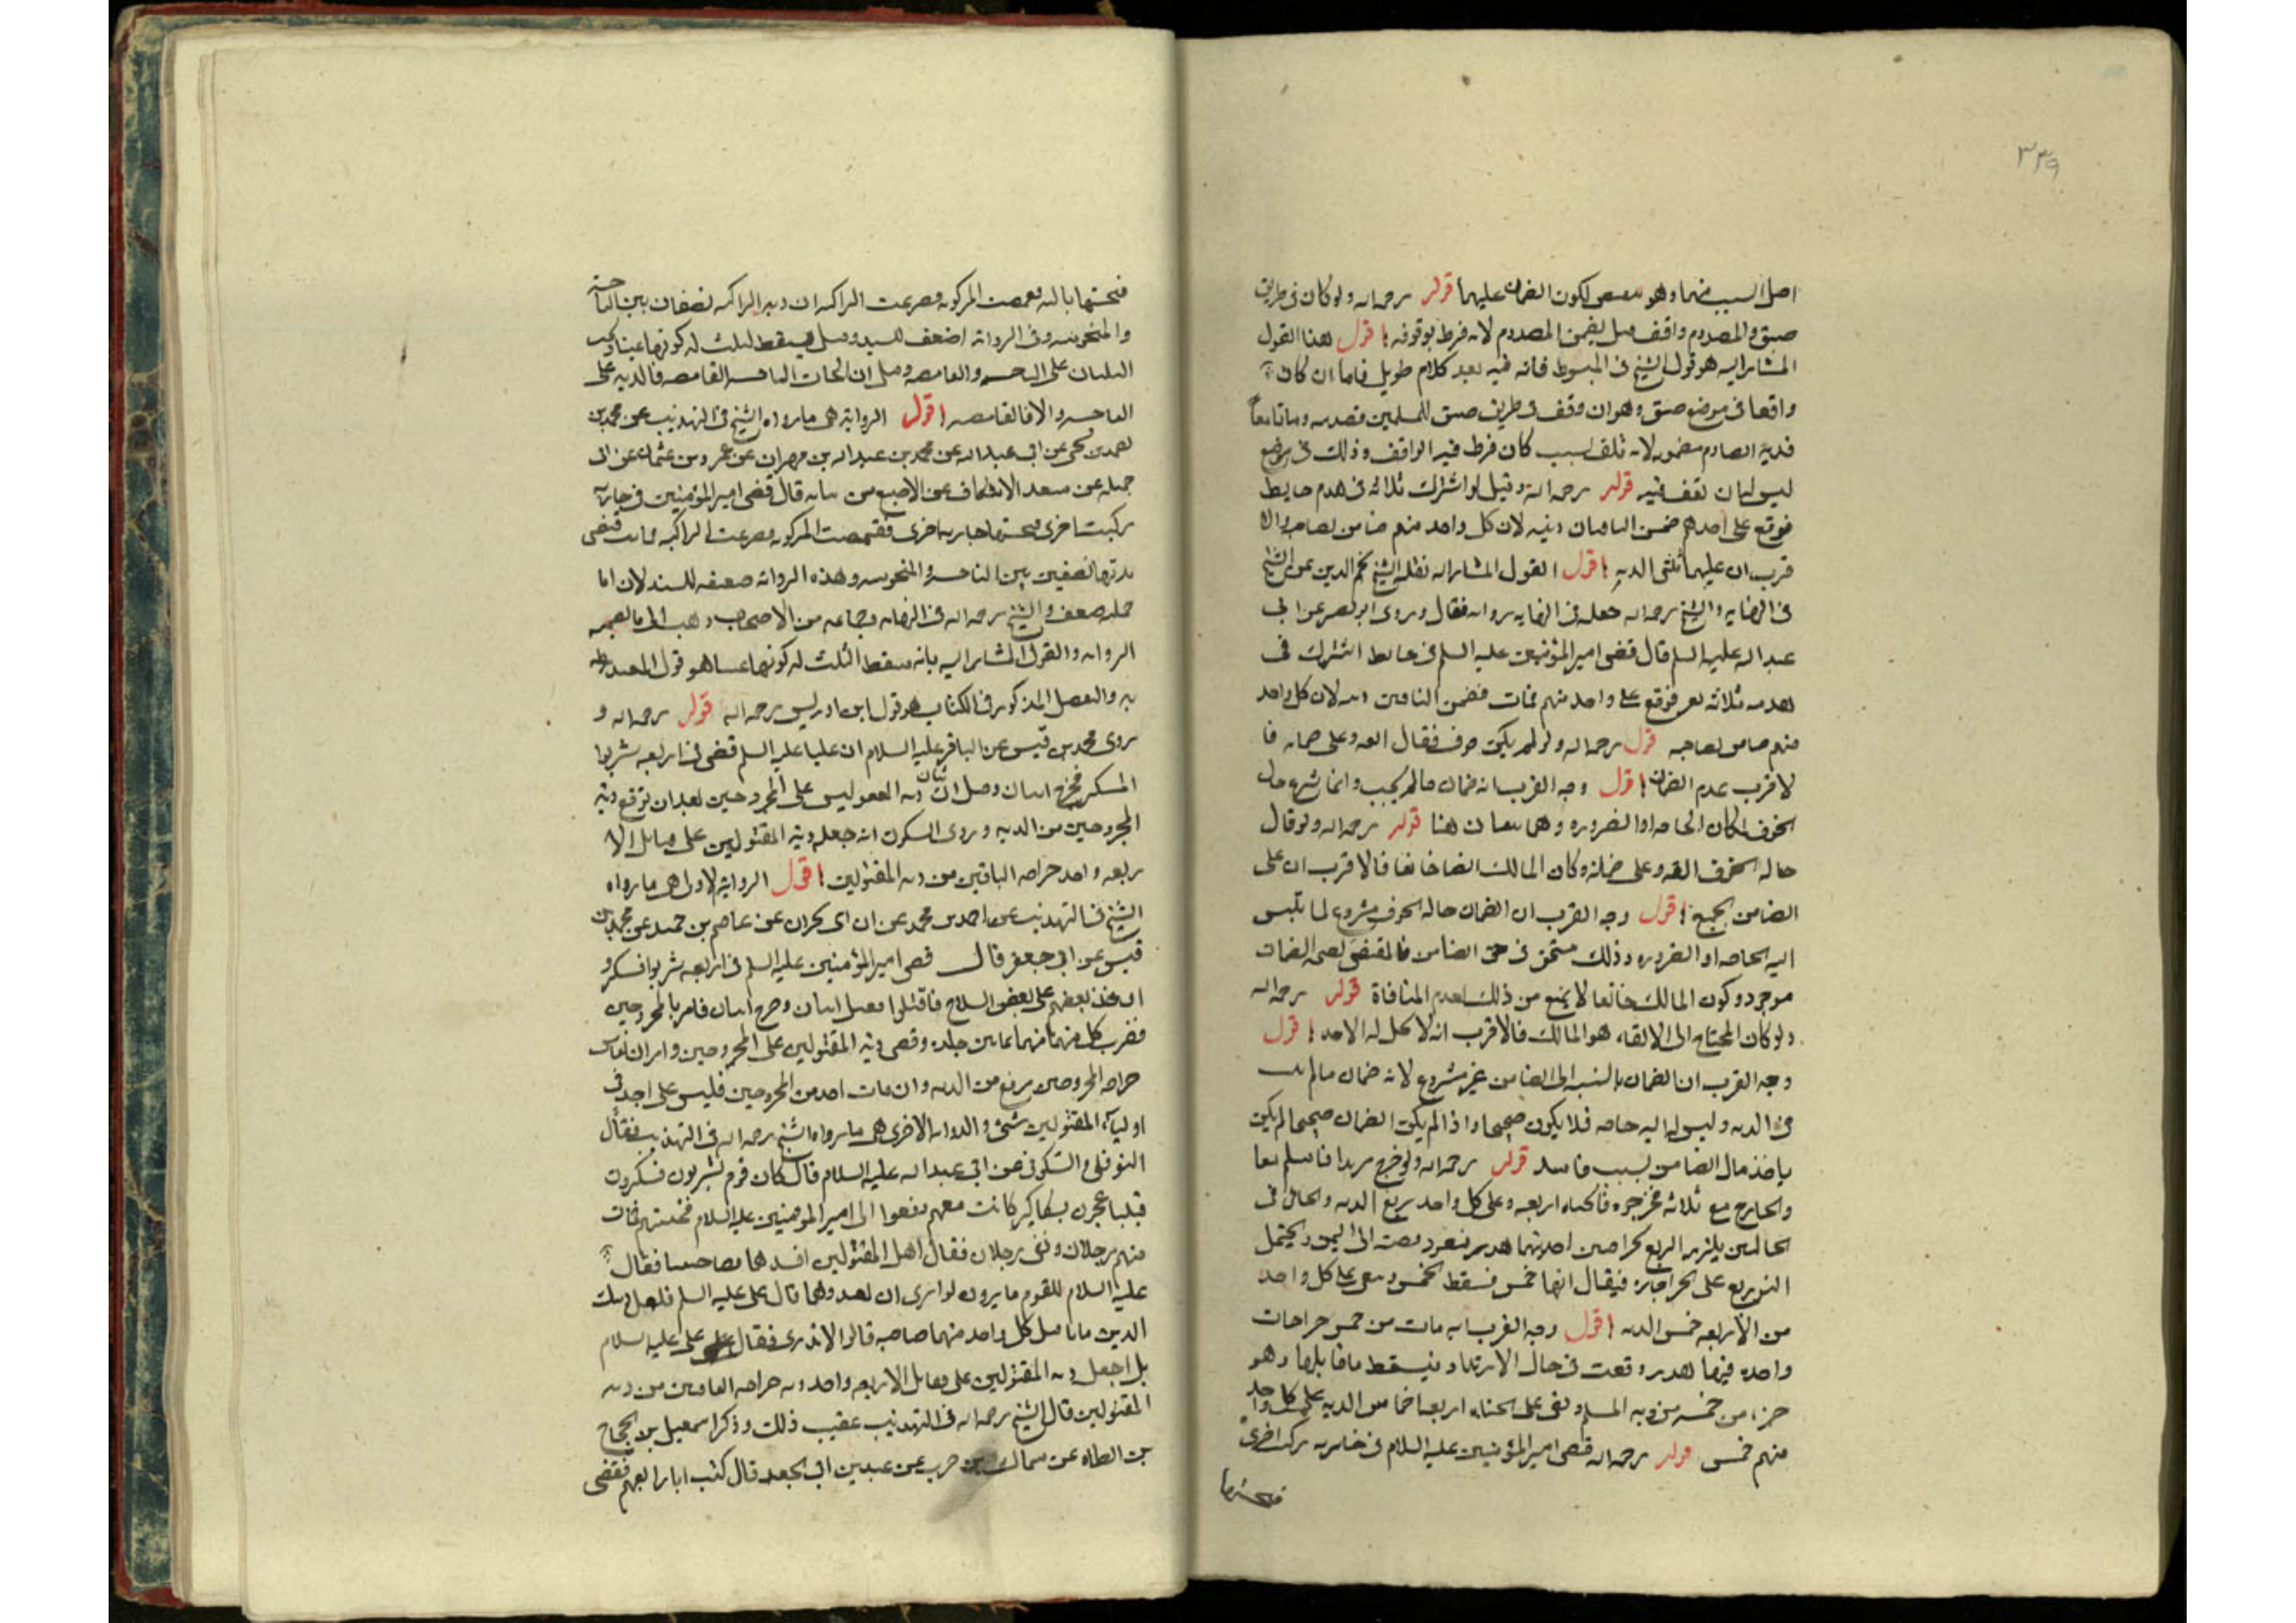 ٣٣٩
اصل السبب منهما وهو لكون الضمان عليهما قوله رحمه الله ولو كان فى طريق
ضيق والمصدوم واقف قيل يضمن المصدوم لانه فرط بوقوفه اقول هذا القول
المشار اليه هو قول الشيخ فى المبسوط فانه فيه بعد كلام طويل فاما ان كان
واقفا فى موضع ضيق وهو ان وقف فى طريق ضيق للمسلمين فصدمه وماتا معاً
فدية الصادم مضمونه لانه تلف بسبب كان فرط فيه الواقف وذلك فى موضع
ليس له ان يقف فيه قوله رحمه الله وقيل لو اشترك ثلاثه فى هدم حايط
فوقع على احدهم ضمن الباقيان ديته لان كل واحد منهم ضامن لصاحبه والا
قرب ان عليهما ثلثى الديه اقول القول المشار اليه نقله الشيخ نجم الدين عن الشيخ
فى النهايه والشيخ رحمه الله جعله فى النهايه روايه فقال وروى ابو بصير عن ابى
عبد الله عليه السلم قال قضى امير المؤمنين عليه السلم فى حايط اشترك فى
هدمه ثلاثه نفر فوقع على واحد منهم فمات فضمن الباقين ديته لان كل واحد
منهم ضامن لصاحبه قوله رحمه الله ولو لم يكن خوف فقال القه وعلى ضمانه فا
لاقرب عدم الضمان اقول وجه القرب انه ضمان مالم يجب وانما شرع حال
الخوف لمكان الحاجه او الضروره وهما منتفيان هنا قوله رحمه الله ولو قال
حاله الخوف القه وعلى ضمانه وكان المالك ايضا خائفا فالاقرب ان على
الضامن الجميع اقول وجه القرب ان الضمان حاله الخوف مشروع لما تلبس
اليه الحاجه او الضروره وذلك متحقق فى حق الضامن فالمقتضى لصحه الضمان
موجود وكون المالك خائفا لا يمنع من ذلك لعدم المنافاة قوله رحمه الله
ولو كان المحتاج الى الالقاء هو المالك فالاقرب انه لا يحل له الاخذ اقول
وجه القرب ان الضمان بالنسبه الى الضامن غير مشروع لانه ضمان مالم
فى الذمه وليس له اليه حاجه فلا يكون صحيحا واذا لم يكن الضمان صحيحا لم يكن
ياخذ مال الضامن بسبب فاسد قوله رحمه الله ولو جرح مرتدا فاسلم
والجارح مع ثلاثه فجرحوه فالجناه اربعه وعلى كل واحد ربع الديه والجانى فى
الحالتين يلزمه الربع بجراحتين احديهما هدر ويحتمل
التوزيع على الجراحات فيقال انها خمس فسقط الخمس ويبقى على كل واحد
من الاربعه خمس الديه اقول وجه القرب انه مات من خمس جراحات
واحده فيها هدر وقعت فى حال الارتداد فيسقط ما قابلها وهو
جزء من خمسه من ديه المسلم وبقى على الجناه اربعه اخماس الديه على كل واحد
منهم خمس قوله رحمه الله قضى امير المؤمنين عليه السلام فى جاريه ركبت اخرى
فنخستها
فنخستها ثالثه فقمصت المركوبه فصرعت الراكبه ان ديه الراكبه نصفان بين الناخسه
والمنخوسه وفى الروايه ضعف للسند وقيل يسقط ثلث لركوبها عبثا ويجب
الثلثان على الناخسه والقامصه وقيل ان الجات الناخسه القامصه فالديه على
الناخسه والا فالقامصه اقول الروايه هى ما رواه الشيخ فى التهذيب عن محمد بن
احمد بن يحيى عن ابى عبد الله عن محمد بن عبد الله بن مهران عن عمرو بن عثمان عن ابى
جميله عن سعد الاسكاف عن الاصبغ بن نباته قال قضى امير المؤمنين فى جاريه
ركبت اخرى فنخستها جاريه اخرى فقمصت المركوبه فصرعت الراكبه فماتت فقضى
بديتها نصفين بين الناخسه والمنخوسه وهذه الروايه ضعيفه السند لان ابا
جميله ضعيف والشيخ رحمه الله فى النهايه وجماعه من الاصحاب ذهب الى ما تضمنته
الروايه والقول المشار اليه بانه يسقط الثلث لركوبها عبثا هو قول المفيد
والتفصيل المذكور فى الكتاب هو قول ابن ادريس رحمه الله قوله رحمه الله و
روى محمد بن قيس عن الباقر عليه السلام ان عليا عليه السلم قضى فى اربعه شربوا
المسكر فجرح اثنان وقتل اثنان ديه المقتولين على المجروحين بعد ان ترفع ديه
المجروحين من الديه وروى السكونى انه جعل ديه المقتولين على قبائل الا
ربعه واخذ جراحه الباقين من ديه المقتولين اقول الروايه الاولى هى ما رواه
الشيخ فى التهذيب عن احمد بن محمد عن ابن ابى نجران عن عاصم بن حميد عن محمد بن
قيس عن ابى جعفر قال قضى امير المؤمنين عليه السلم فى اربعه شربوا فسكرو
اخذ بعضهم على بعض السلاح فاقتتلوا فقتل اثنان وجرح اثنان فامر بالمجروحين
فضرب كل منهما ثمانين جلده وقضى ديه المقتولين على المجروحين وامر ان تقاس
جراحه المجروحين فترفع من الديه وان مات احد من المجروحين فليس على احد فى
اولياء المقتولين شئ والروايه الاخرى هى ما رواه الشيخ رحمه الله فى التهذيب فقال
النوفلى والسكونى عن ابى عبد الله عليه السلام قال كان قوم يشربون فسكرون
فتباعجون بسكاكين كانت معهم فرفعوا الى امير المومنين عليه السلام فسجنهم فمات
منهم رجلان وبقى رجلان فقال اهل المقتولين اقدهما بصاحبينا فقال
عليه السلام للقوم ما يرون قالوا نرى ان تقيدهما قال على عليه السلم فلعل ذينك
الذين ماتا قتل كل واحد منهما صاحبه قالوا لا ندرى فقال على عليه السلام
بل اجعل ديه المقتولين على قبائل الاربعه واخذ ديه جراحه الباقين من ديه
المقتولين قال الشيخ رحمه الله فى التهذيب عقيب ذلك وذكر اسمعيل بن الحجاج
بن ارطاه عن سماك بن حرب عن عبد بن ابى الجعد قال كنت انا رابعهم فقضى